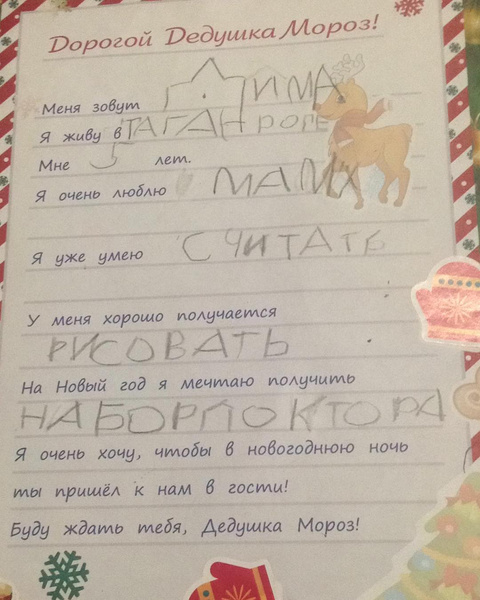 Дорогой Дедушка Мороз!
Меня зовут ДИМА
Я живу в ТАГАНРОГЕ
Мне лет.
Я очень люблю МАМУ
Я уже умею СЧИТАТЬ
У меня хорошо получается
РИСОВАТЬ
На Новый год я мечтаю получить
НАБОРДОКТОРА
Я очень хочу, чтобы в новогоднюю ночь
ты пришёл к нам в гости!
Буду ждать тебя, Дедушка Мороз!